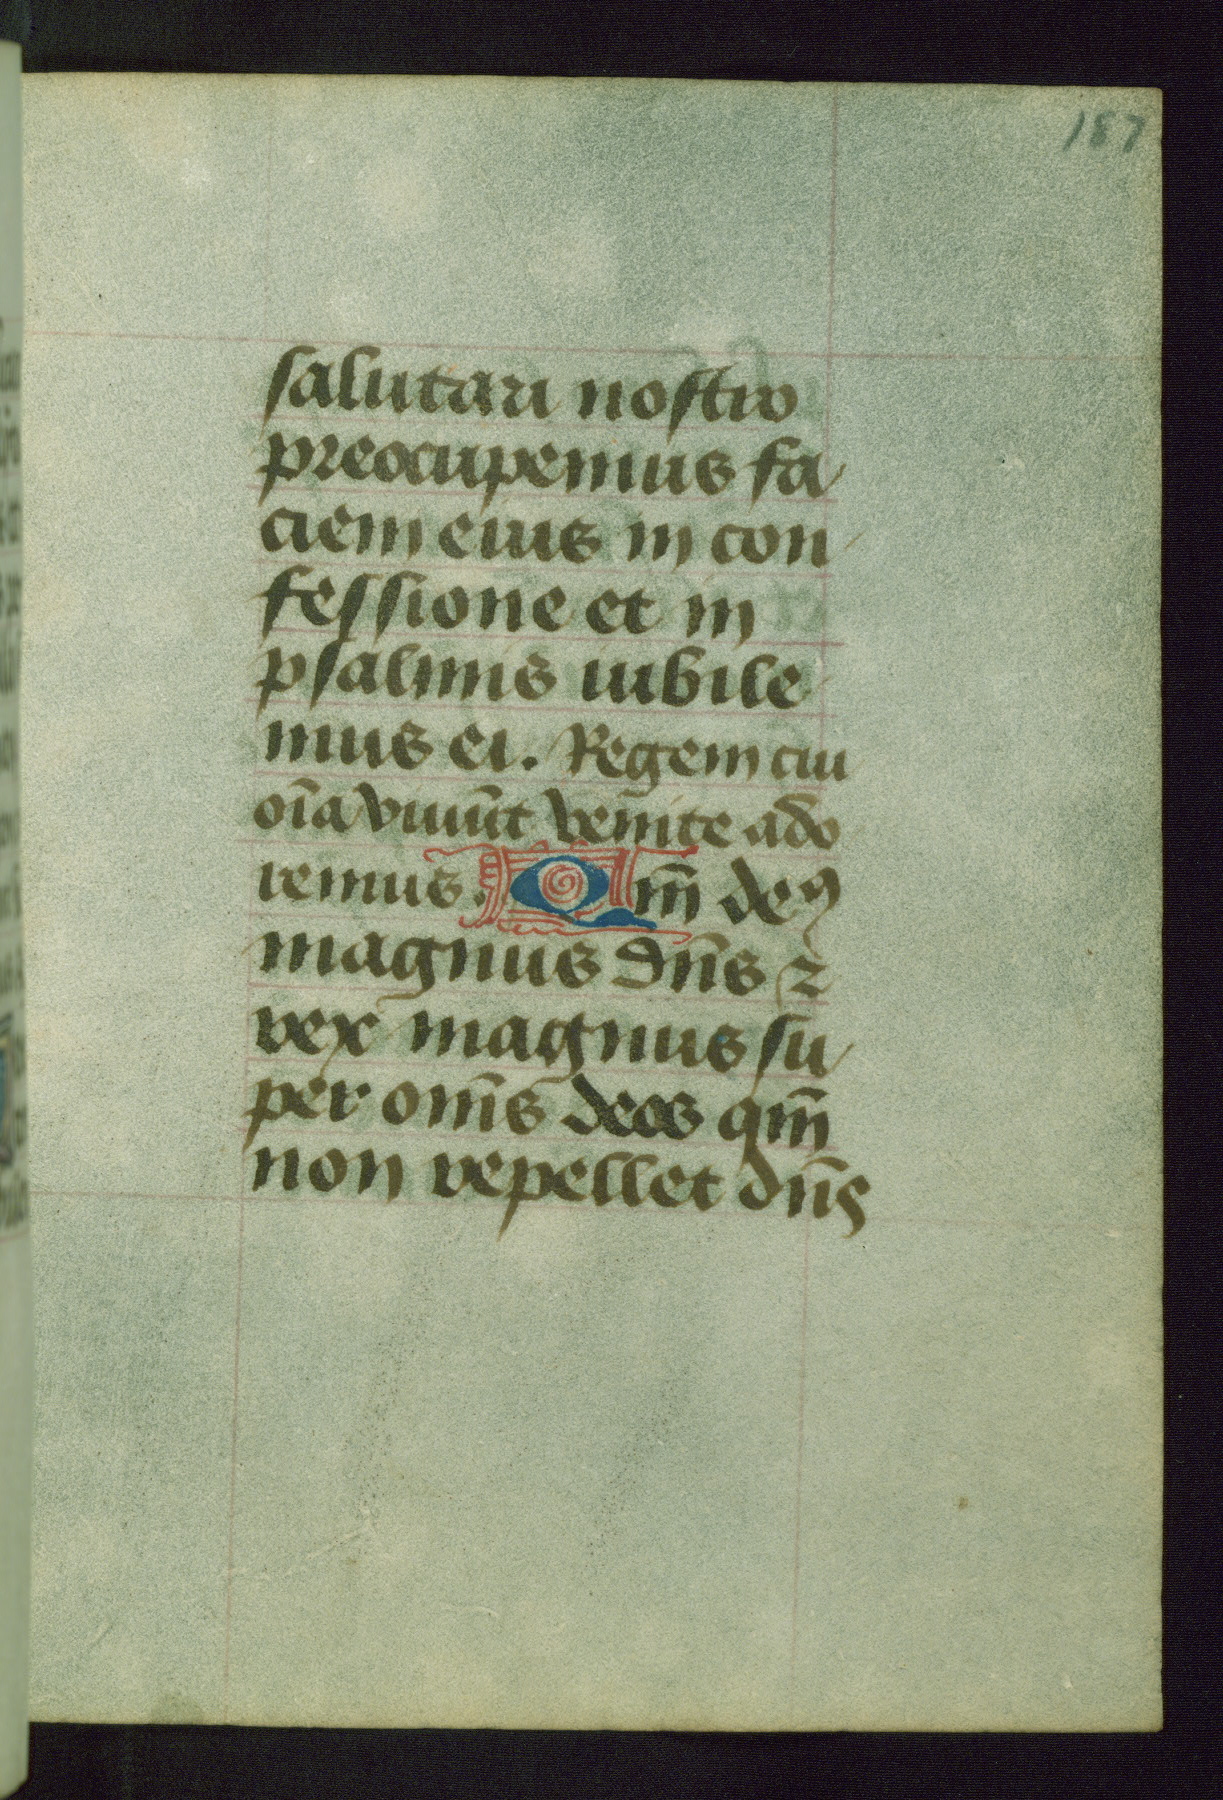 187
salutari nostro
preocupemus fa
ciem eius in con
fessione et in
psalmis iubile
mus ei. Regem cui
oĩa viuũt venite ado
remus. Qm̃ deꝰ
magnus dñs ⁊
rex magnus su
per om̃s deos qm̃
non repellet dñs